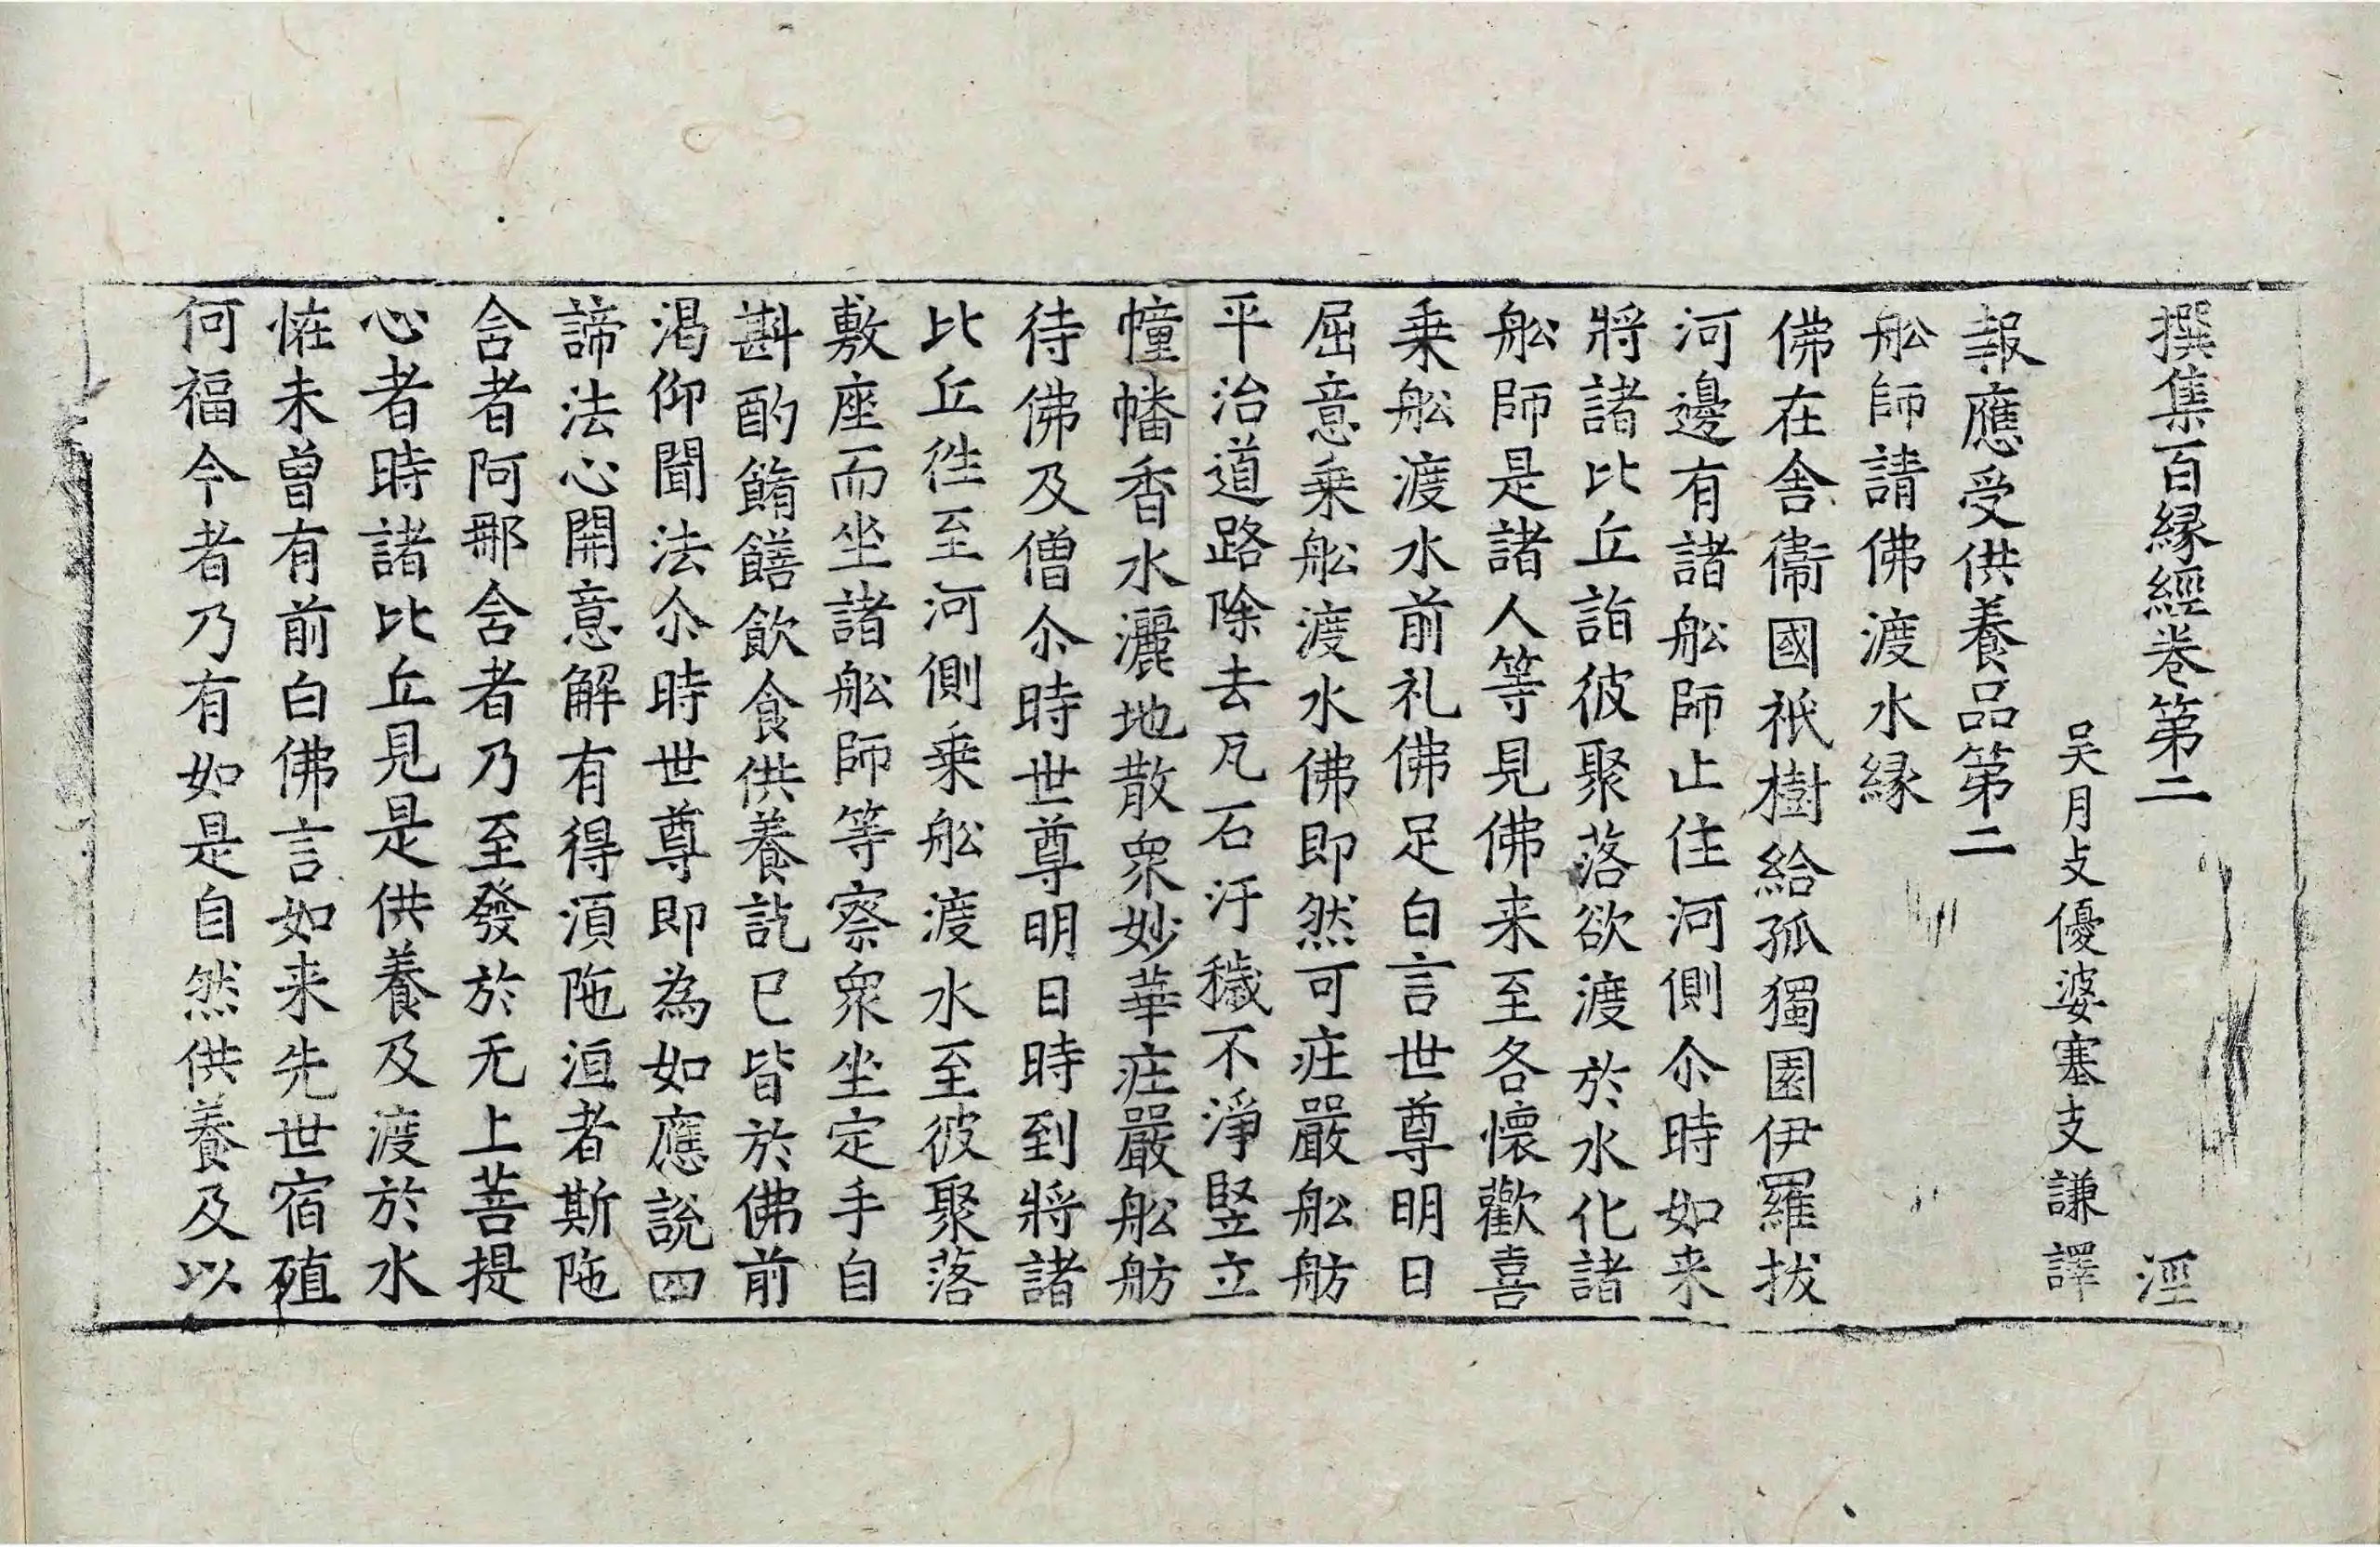 撰集百縁經卷第二　涇
吴月支優婆塞支謙譯
報應受供養品第二
舩師請佛渡水縁
佛在舎衞國祇樹給孤獨園伊羅拔
河邊有諸舩師止住河側尒時如来
將諸比丘詣彼聚落欲渡於水化諸
舩師是諸人等見佛来至各懷歡喜
乗舩渡水前礼佛足白言世尊明日
屈意乗舩渡水佛即然可㽵嚴舩舫
平治道路除去瓦石汙穢不淨竪立
幢幡香水灑地散衆妙華㽵嚴舩舫
待佛及僧尒時世尊明日時到將諸
比丘徃至河側乗舩渡水至彼聚落
敷座而坐諸舩師等察衆坐定手自
斟酌餚饍飲食供養訖已皆於佛前
渇仰聞法尒時世尊即為如應說四
諦法心開意解有得湏陁洹者斯陁
含者阿那含者乃至發於无上菩提
心者時諸比丘見是供養及渡於水
恠未曽有前白佛言如来先世宿殖
何福今者乃有如是自然供養及以